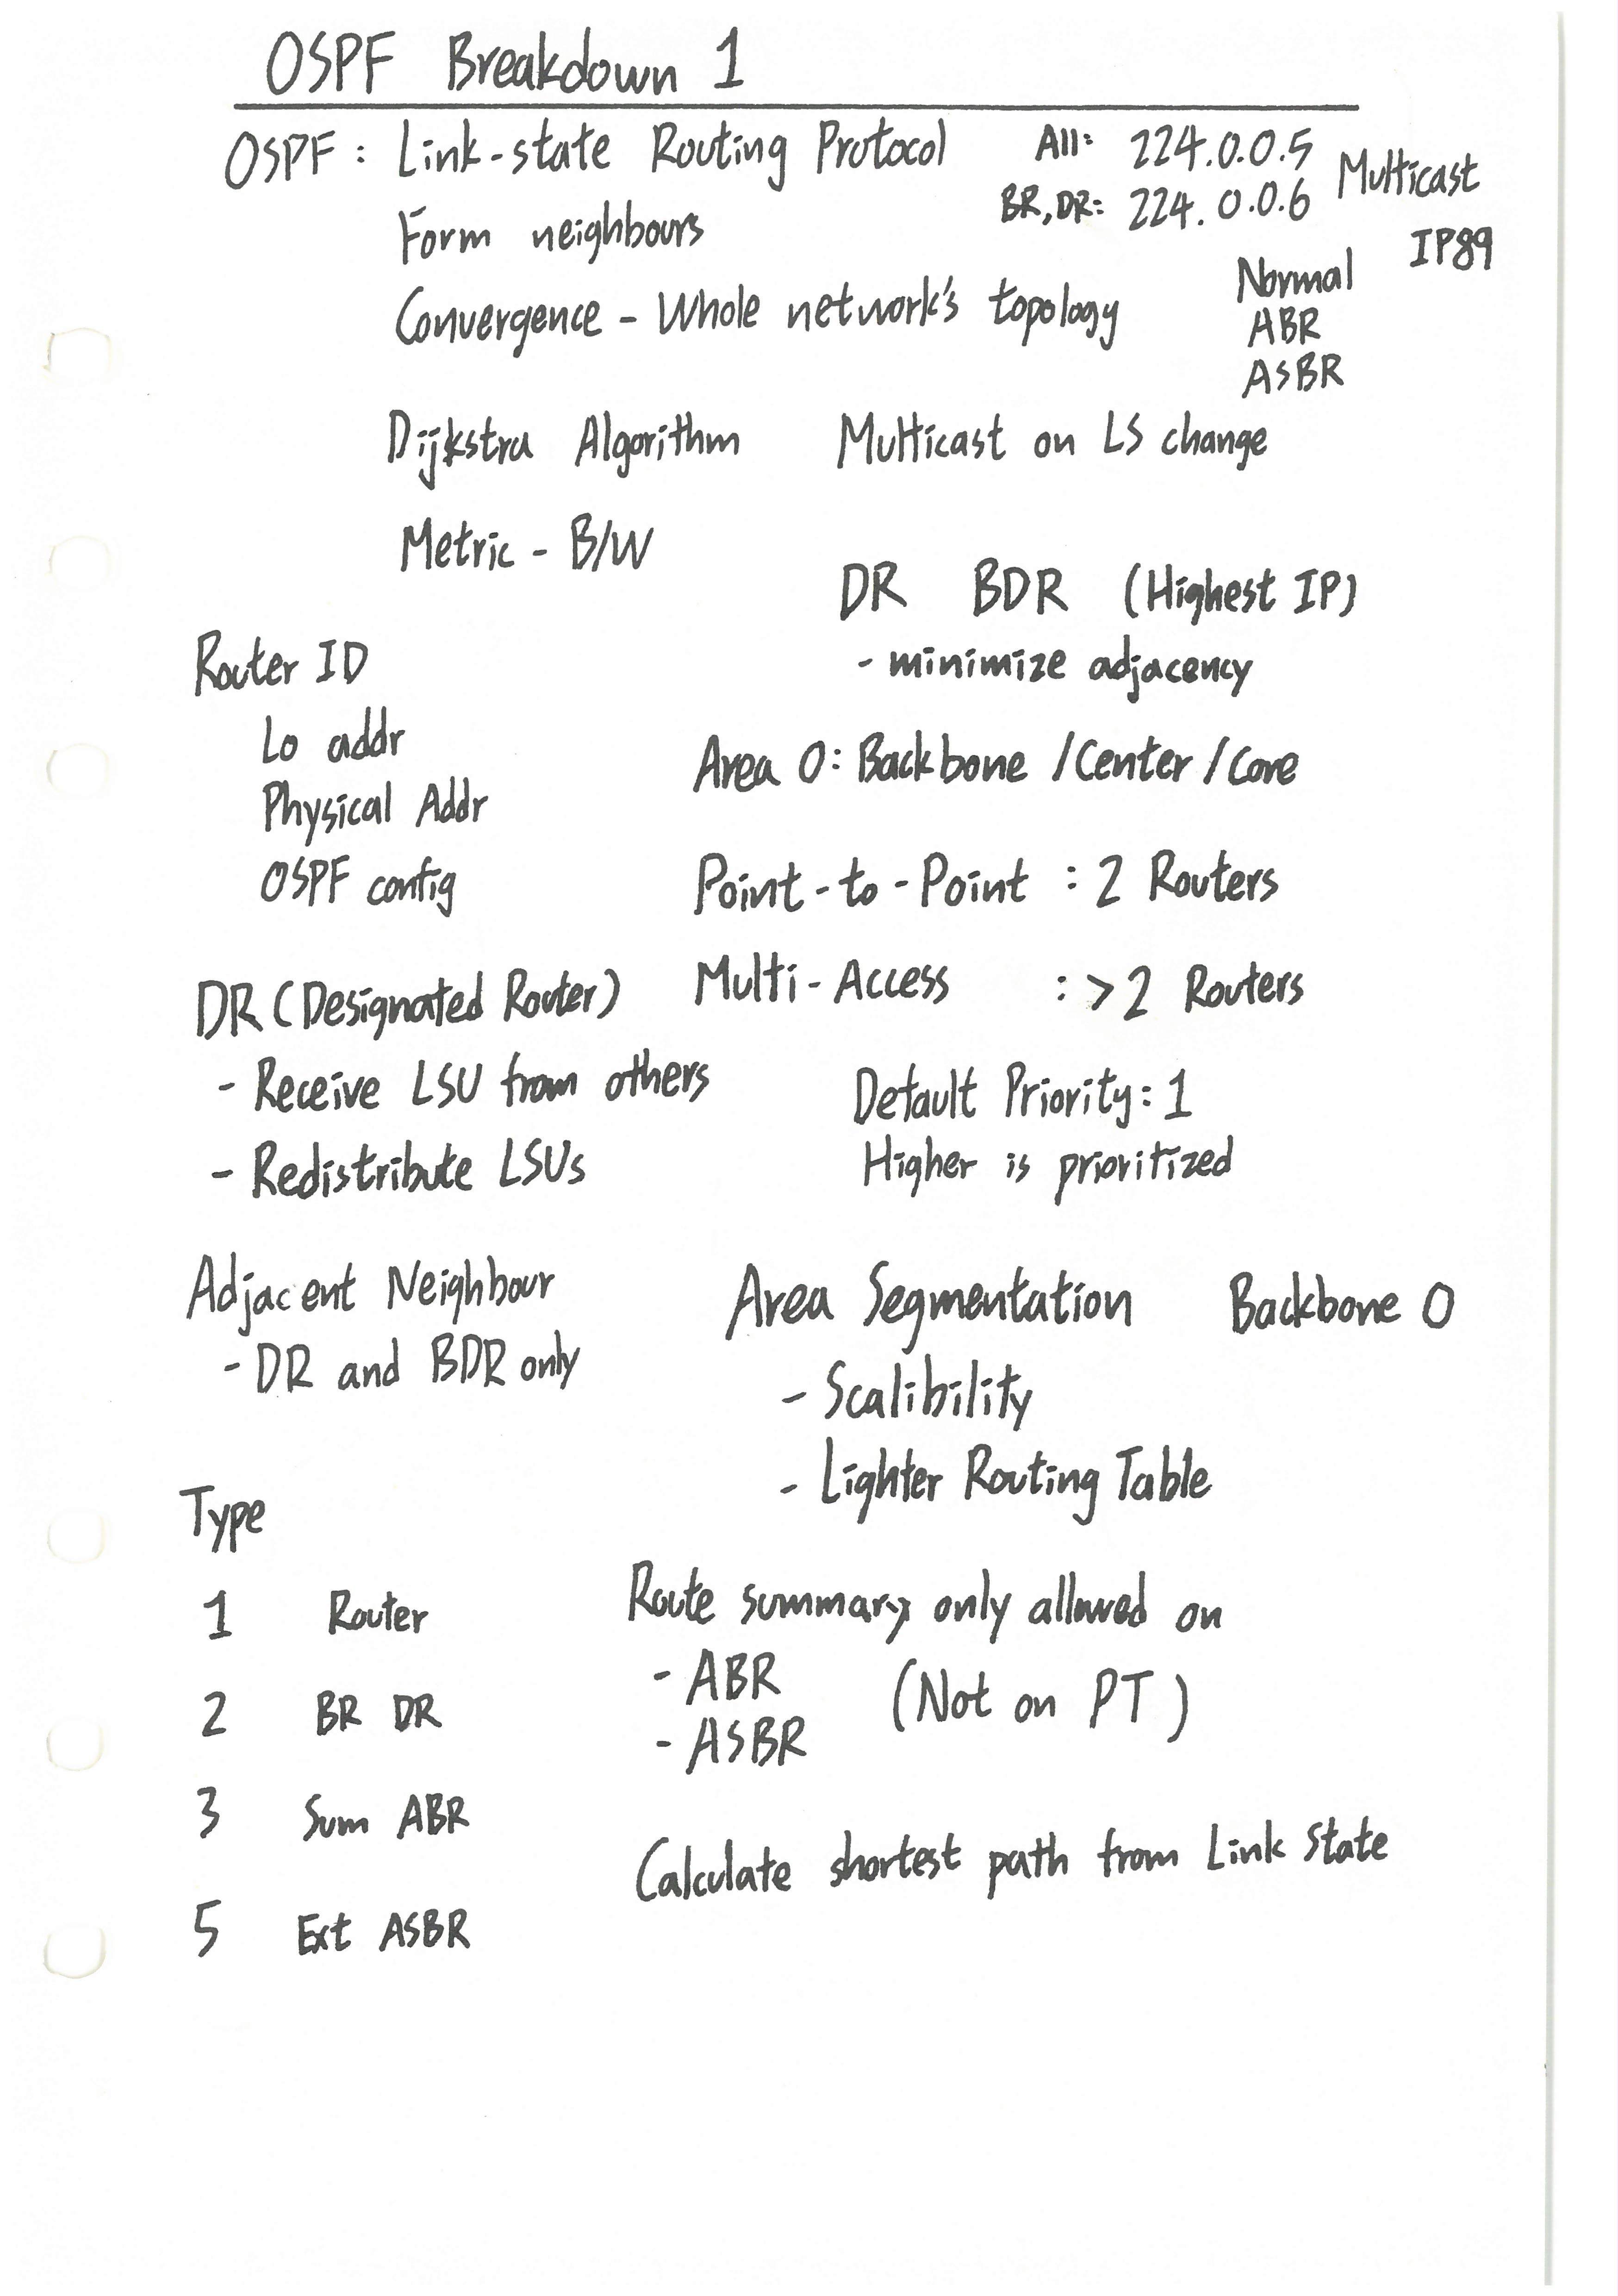 OSPF Breakdown 1
OSPF: Link-state Routing Protocol
All: 224.0.0.5
BR, DR: 224.0.0.6
Multicast
IP89
Form neighbours
Convergence - Whole network's topology
Normal
ABR
ASBR
Dijkstra Algorithm
Multicast on LS change
Metric - B/W
DR BDR (Highest IP)
- minimize adjacency
Router ID
Lo addr
Physical Addr
OSPF config
Area 0: Backbone /Center /Core
Point-to-Point : 2 Routers
Multi-Access : >2 Routers
DR (Designated Router)
- Receive LSU from others
- Redistribute LSUs
Default Priority: 1
Higher is prioritized
Adjacent Neighbour
- DR and BDR only
Area Segmentation Backbone 0
- Scalibility
- Lighter Routing Table
Type
1 Router
2 BR DR
3 Sum ABR
5 Ext ASBR
Route summary only allowed on
- ABR
- ASBR
(Not on PT)
Calculate shortest path from Link State